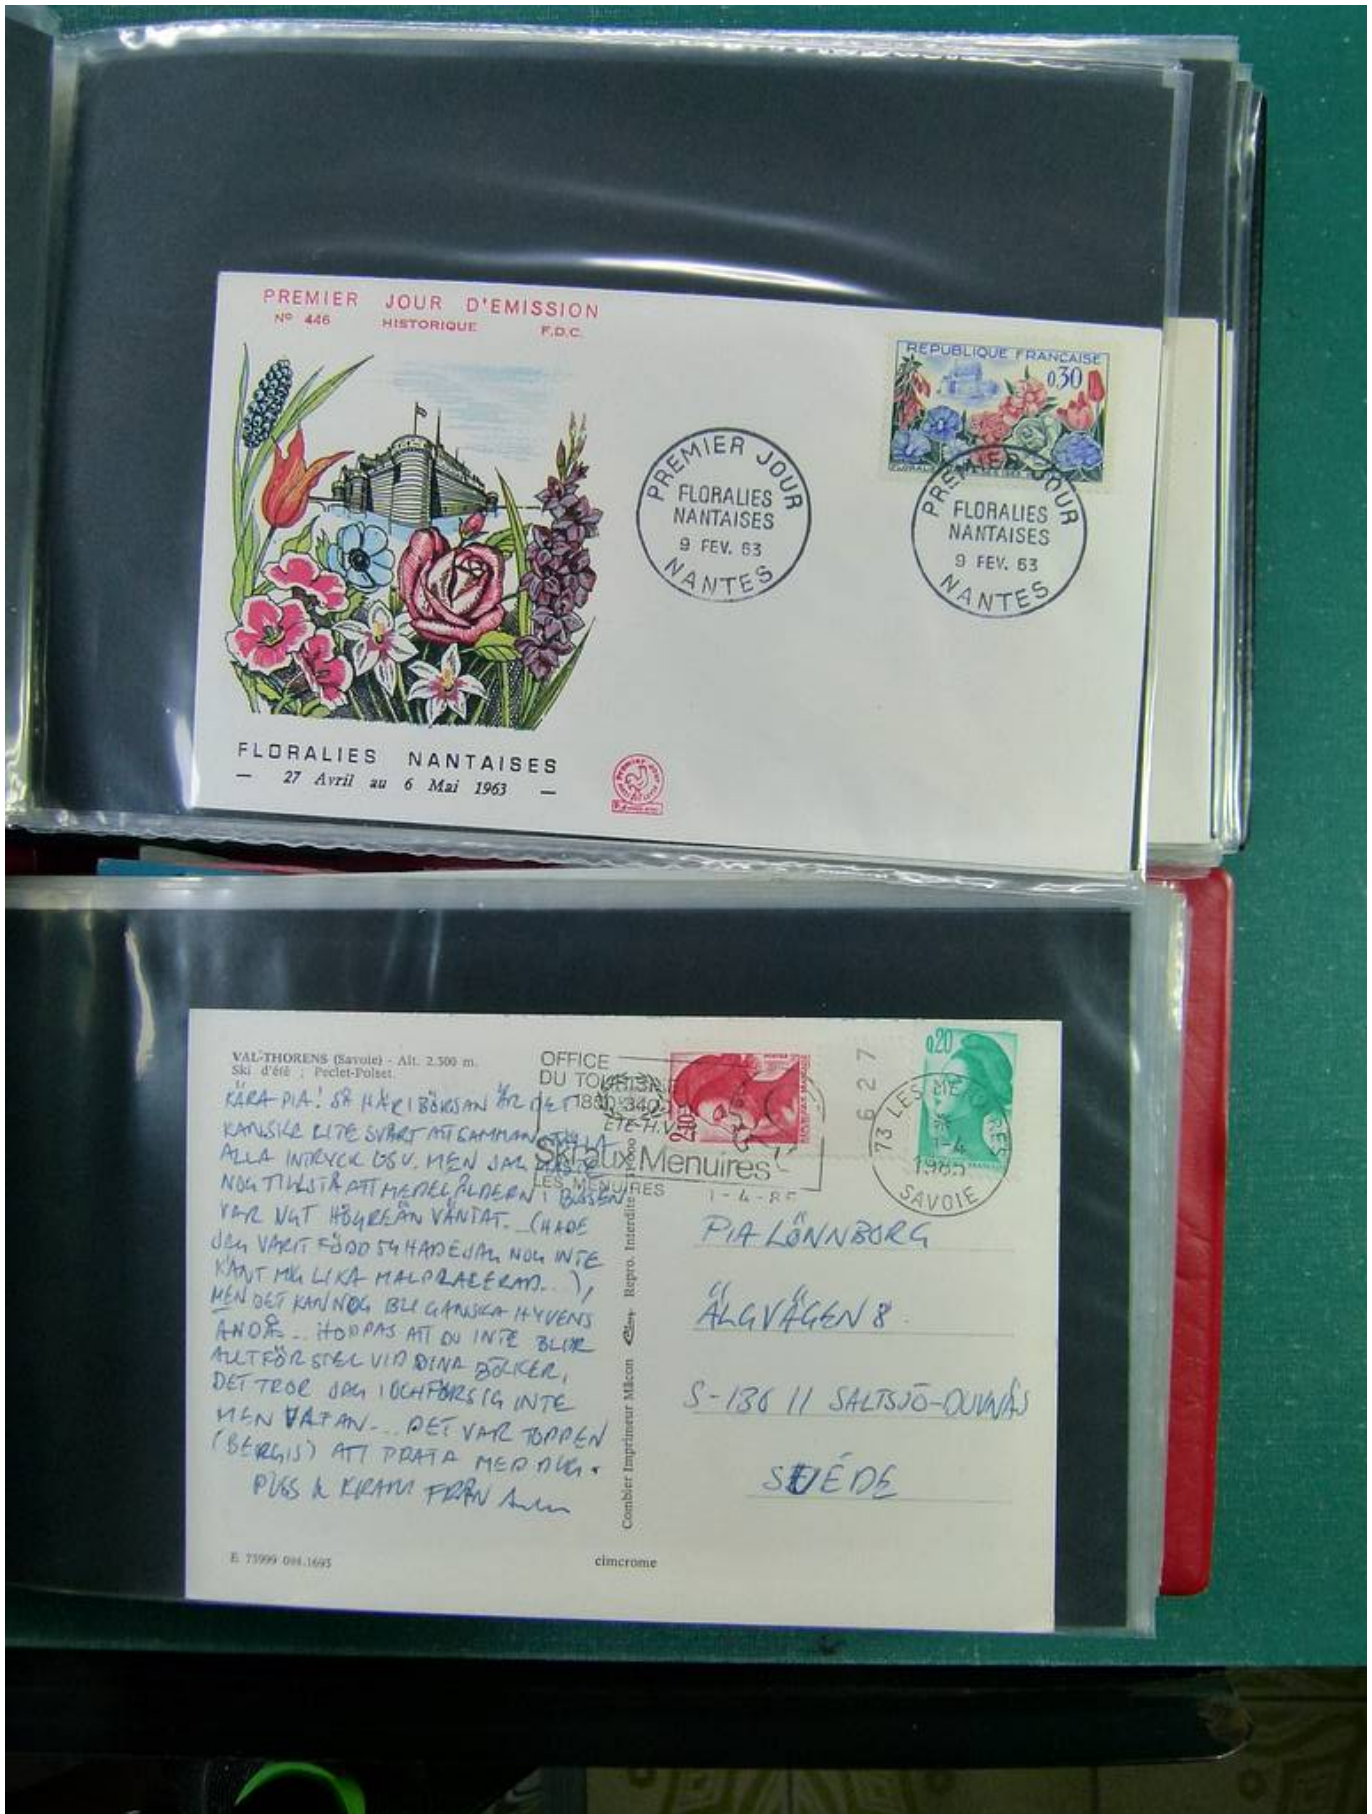 PREMIER JOUR D'EMISSION
Nº 446 HISTORIQUE F.D.C.
REPUBLIQUE FRANCAISE
0,30
PREMIER JOUR
FLORALIES
NANTAISES
9 FEV. 63
NANTES
PREMIER JOUR
FLORALIES
NANTAISES
9 FEV. 63
NANTES
FLORALIES NANTAISES
— 27 Avril au 6 Mai 1963 —
VAL-THORENS (Savoie) - Alt. 2.300 m.
Ski d'été ; Peclet-Polset.
OFFICE
DU
Ski aux Menuires
LES MENUIRES
1-4-85
2,10
627
0,20
73 LES MENUIRES
1-4
1985
SAVOIE
KÄRA PIA! SÅ HÄR I BÖRJAN ÄR DET
KANSKE LITE SVÅRT ATT SAMMANSTÄLLA
ALLA INTRYCK OSV. MEN JAG MÅSTE
NOG TILLSTÅ ATT MEDELÅLDERN I BUSSEN
VAR NGT HÖGRE ÄN VÄNTAT. (HADE
JAG VARIT FÖDD 54 HADE JAG NOG INTE
KÄNT MIG LIKA MALPLACERAD...),
MEN DET KAN NOG BLI GANSKA HYVENS
ÄNDÅ... HOPPAS ATT DU INTE BLIR
ALLTFÖR STEL VID DINA BÖCKER,
DET TROR JAG I OCH FÖR SIG INTE
MEN . DET VAR TOPPEN
(BERGIS) ATT PRATA MED DIG.
PUSS & KRAM FRÅN
PIA LÖNNBORG
ÄLGVÄGEN 8.
S-136 11 SALTSJÖ-DUVNÄS
SUÉDE
Combier Imprimeur Mâcon Repro. Interdite
E 73999 cimcrome